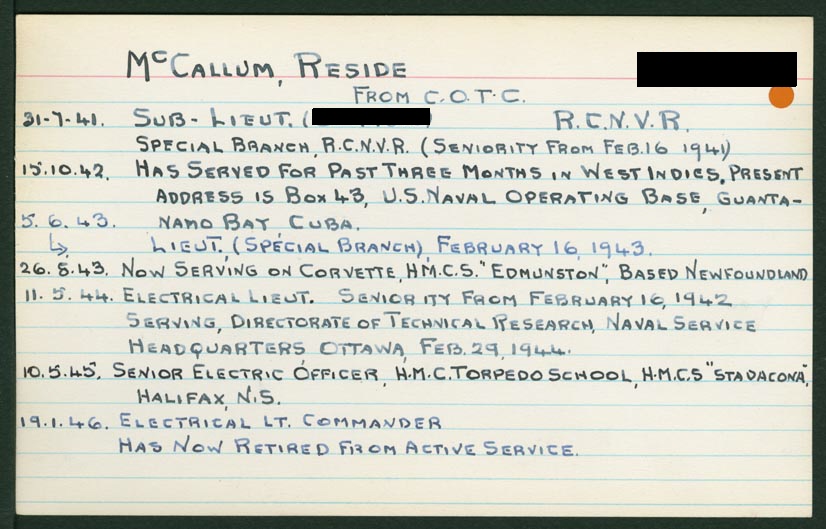 McCALLUM, RESIDE
FROM C.O.T.C.
31-7-41. SUB-LIEUT. ( ) R.C.N.V.R.
SPECIAL BRANCH, R.C.N.V.R. (SENIORITY FROM FEB. 16 1941)
15.10.42. HAS SERVED FOR PAST THREE MONTHS IN WEST INDIES. PRESENT
ADDRESS IS BOX 43, U.S. NAVAL OPERATING BASE, GUANTA-
5. 6. 43. NAMO BAY, CUBA.
↳ LIEUT. (SPECIAL BRANCH), FEBRUARY 16, 1943.
26.8.43. NOW SERVING ON CORVETTE, H.M.C.S. "EDMUNSTON", BASED NEWFOUNDLAND
11. 5. 44. ELECTRICAL LIEUT. SENIORITY FROM FEBRUARY 16, 1942
SERVING, DIRECTORATE OF TECHNICAL RESEARCH, NAVAL SERVICE
HEADQUARTERS OTTAWA, FEB. 29, 1944.
10.5.45. SENIOR ELECTRIC OFFICER, H.M.C. TORPEDO SCHOOL, H.M.C.S "STADACONA",
HALIFAX, N.S.
19.1.46. ELECTRICAL LT. COMMANDER
HAS NOW RETIRED FROM ACTIVE SERVICE.